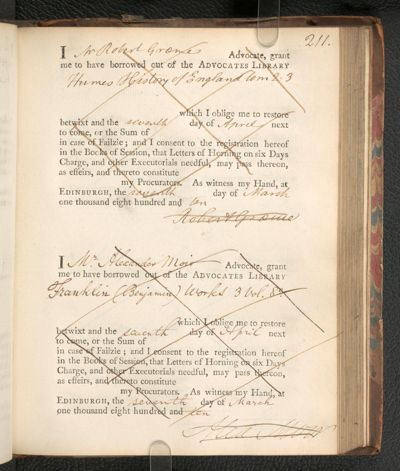 211.
I Mr Robert Græme Advocate, grant
me to have borrowed out of the ADVOCATES LIBRARY
Humes History of England tom 2. 3
which I oblige me to restore
betwixt and the seventh day of April next
to come, or the Sum of
in case of Failzie; and I consent to the registration hereof
in the Books of Session, that Letters of Horning on six Days
Charge, and other Executorials needful, may pass thereon,
as effeirs, and thereto constitute
my Procurators. As witness my Hand, at
EDINBURGH, the seventh day of March
one thousand eight hundred and ten
Robert Græme
I Mr. Alexander Moir Advocate, grant
me to have borrowed out of the ADVOCATES LIBRARY
Franklin (Benjamin) Works 3 Vol. 8o.
which I oblige me to restore
betwixt and the seventh day of April next
to come, or the Sum of
in case of Failzie; and I consent to the registration hereof
in the Books of Session, that Letters of Horning on six Days
Charge, and other Executorials needful, may pass thereon,
as effeirs, and thereto constitute
my Procurators. As witness my Hand, at
EDINBURGH, the seventh day of March
one thousand eight hundred and ten